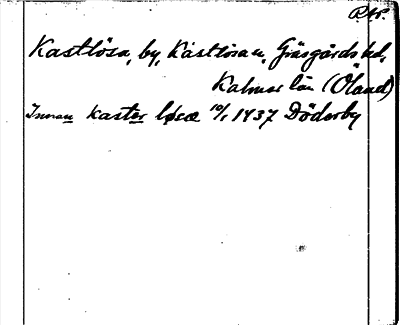 P.Nr.
Kastlösa, by, Kastlösa sn, Gräsgårds hd,
Kalmar län (Öland)
Innan kaster løsa 10/1 1437 Döderby